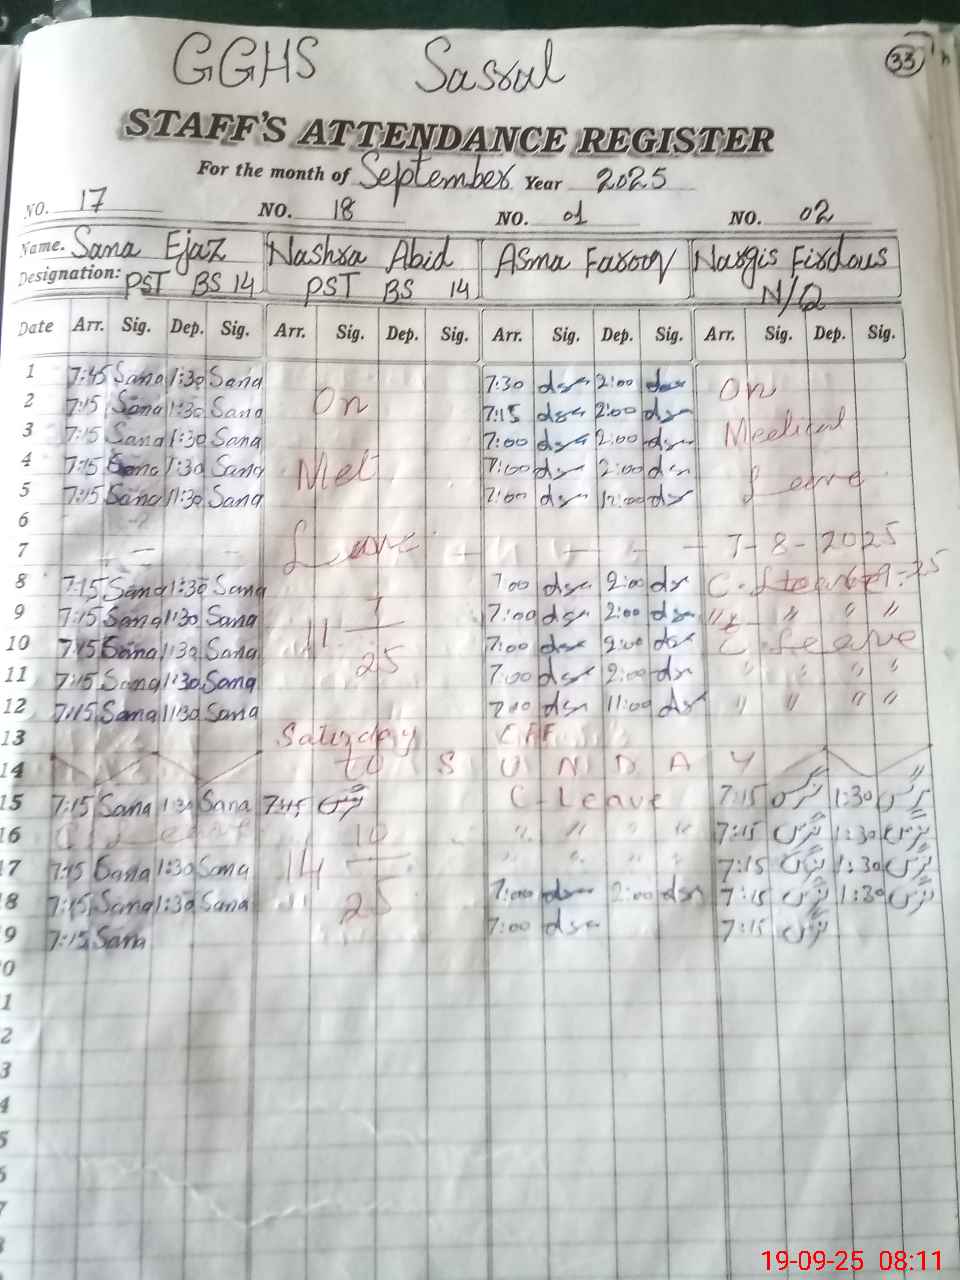 GGHS Sassal
33
STAFF'S ATTENDANCE REGISTER
For the month of September Year 2025
NO. 17 NO. 18 NO. 01 NO. 02
Name. Sana Ejaz Nashra Abid Asma Farooq Nargis Firdous
Designation: PST BS 14 PST BS 14 N/Q
Date Arr. Sig. Dep. Sig. Arr. Sig. Dep. Sig. Arr. Sig. Dep. Sig. Arr. Sig. Dep. Sig.
1 7:45 Sana 1:30 Sana 7:30 2:00 On
2 7:15 Sana 1:30 Sana On 7:15 2:00
3 7:15 Sana 1:30 Sana 7:00 2:00 Medical
4 7:15 Sana 1:30 Sana Met 7:00 2:00
5 7:15 Sana 1:30 Sana 7:00 12:00 Leave
6
7 Leave 7-8-2025
8 7:15 Sana 1:30 Sana 7:00 2:00
9 7:15 Sana 1:30 Sana 7:00 2:00 " " "
10 7:15 Sana 1:30 Sana 25 7:00 2:00 C. Leave
11 7:15 Sana 1:30 Sana 7:00 2:00 " " " "
12 7:15 Sana 1:30 Sana 7:00 11:00 " " " "
13 Saturday OFF
14 to S U N D A Y
15 7:15 Sana 1:30 Sana 7:15 نرگس C-Leave 7:15 نرگس 1:30 نرگس
16 C. Leave 10 " " " " 7:15 نرگس 1:30 نرگس
17 7:15 Sana 1:30 Sana 14 " " " " 7:15 نرگس 1:30 نرگس
8 7:15 Sana 1:30 Sana 25 7:00 2:00 7:15 نرگس 1:30 نرگس
9 7:15 Sana 7:00 7:15 نرگس
0
1
2
3
4
5
6
7
8
19-09-25 08:11